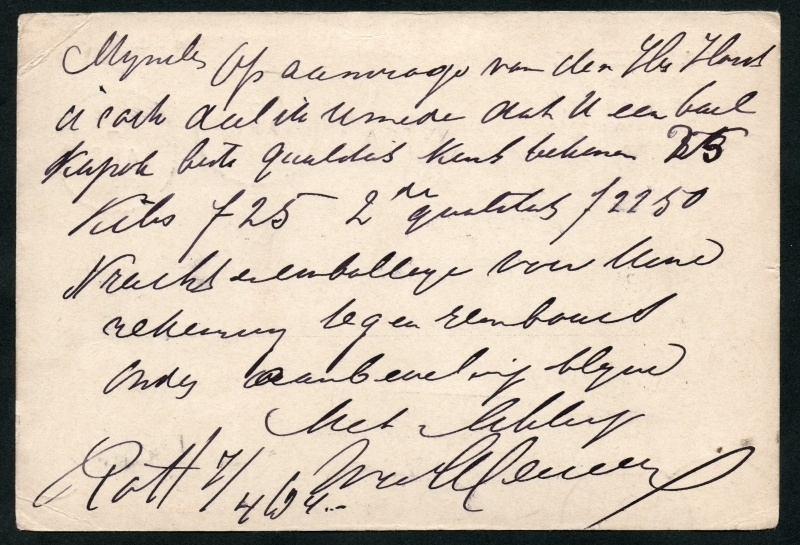 Mynh Op aanvrage van den Hr Horst
deel ik U mede dat U een baal
Kapok beste qualiteit kunt bekomen 25
Kilos f 25 2de qualiteit f 22 50
Vracht en emballage voor Uwe
rekening tegen rembours
Onder aanbeveling blyve
Met Achting
Rott 7/4